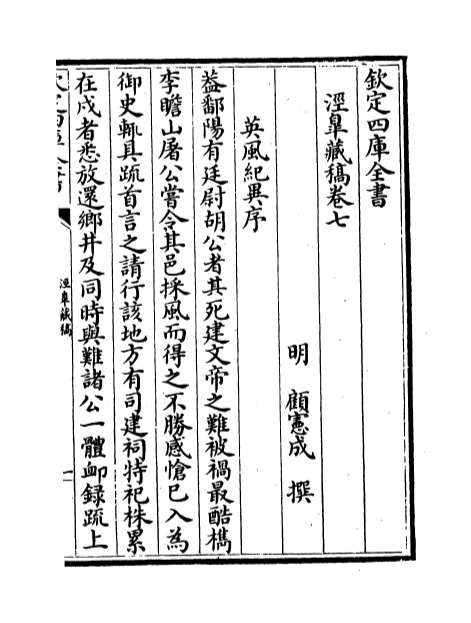 欽定四庫全書
涇臯藏稿卷七
明　顧憲成　撰
英風紀異序
葢鄱陽有廷尉胡公者其死建文帝之難被禍最酷檇
李瞻山屠公嘗令其邑採風而得之不勝感愴已入為
御史輒具疏首言之請行該地方有司建祠特祀株累
在戍者悉放還鄉井及同時與難諸公一體䘏録疏上
涇臯藏稿
一